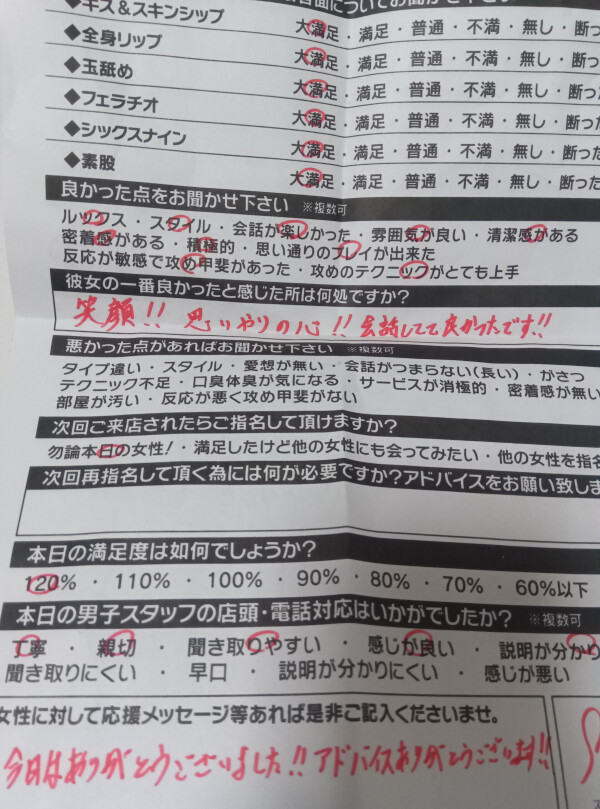 面についてお聞かせ下さい
◆キス＆スキンシップ 大満足・満足・普通・不満・無し・断った
◆全身リップ 大満足・満足・普通・不満・無し・断った
◆玉舐め 大満足・満足・普通・不満・無し・断った
◆フェラチオ 大満足・満足・普通・不満・無し・断った
◆シックスナイン 大満足・満足・普通・不満・無し・断った
◆素股 大満足・満足・普通・不満・無し・断った
良かった点をお聞かせ下さい ※複数可
ルックス・スタイル・会話が楽しかった・雰囲気が良い・清潔感がある
密着感がある・積極的・思い通りのプレイが出来た
反応が敏感で攻め甲斐があった・攻めのテクニックがとても上手
彼女の一番良かったと感じた所は何処ですか?
笑顔!! 思いやりの心!! 会話してて良かったです!!
悪かった点があればお聞かせ下さい ※複数可
タイプ違い・スタイル・愛想が無い・会話がつまらない(長い)・がさつ
テクニック不足・口臭体臭が気になる・サービスが消極的・密着感が無い
部屋が汚い・反応が悪く攻め甲斐がない
次回ご来店されたらご指名して頂けますか?
勿論本日の女性!・満足したけど他の女性にも会ってみたい・他の女性を指名
次回再指名して頂く為には何が必要ですか?アドバイスをお願い致しま
本日の満足度は如何でしょうか?
120%・110%・100%・90%・80%・70%・60%以下
本日の男子スタッフの店頭・電話対応はいかがでしたか? ※複数可
丁寧・親切・聞き取りやすい・感じが良い・説明が分かり
聞き取りにくい・早口・説明が分かりにくい・感じが悪い
女性に対して応援メッセージ等あれば是非ご記入くださいませ。
今日はありがとうございました!! アドバイスありがとうございます!!